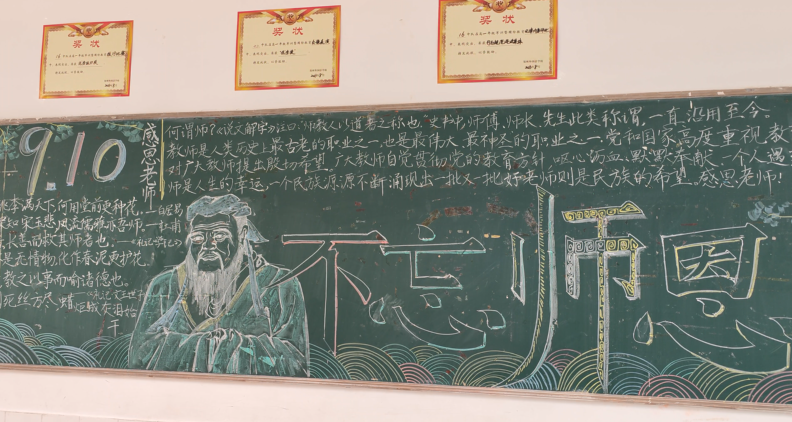 奖状
奖状
奖状
9.10
感恩老师
何谓师?《说文解字》注曰:"师教人以道者之称也。"史书中,师傅、师长、先生此类称谓,一直沿用至今。
教师是人类历史上最古老的职业之一,也是最伟大、最神圣的职业之一,党和国家高度重视教
对广大教师提出殷切希望,广大教师自觉贯彻党的教育方针,呕心沥血、默默奉献,一个人遇
师是人生的幸运,一个民族源源不断涌现出一批又一批好老师则是民族的希望。感恩老师!
李满天下,何用堂前更种花。——白居易
知宋玉悲,风流儒雅亦吾师。——杜甫
长善而救其失者也。——《礼记·学记》
是无情物,化作春泥更护花。
教之以事而喻诸德也。
死丝方尽,蜡炬成灰泪始
干
不忘师恩